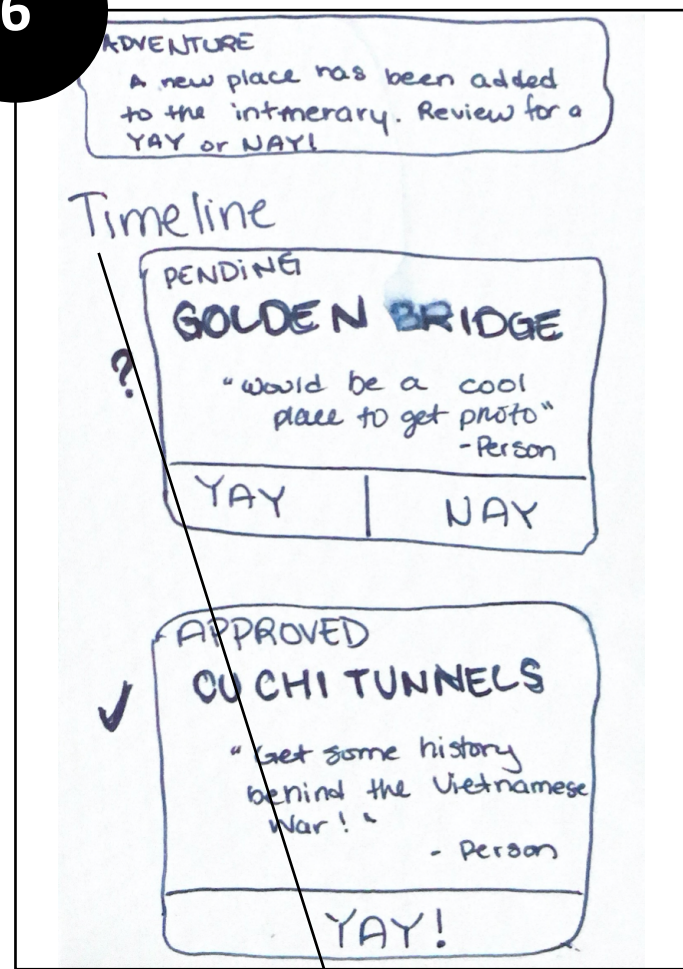 6
ADVENTURE
A new place has been added
to the intmerary. Review for a
YAY or NAY!
Timeline
PENDING
GOLDEN BRIDGE
?
"would be a cool
place to get photo"
-Person
YAY NAY
APPROVED
CU CHI TUNNELS
"Get some history
behind the Vietnamese
War!"
- Person
YAY!